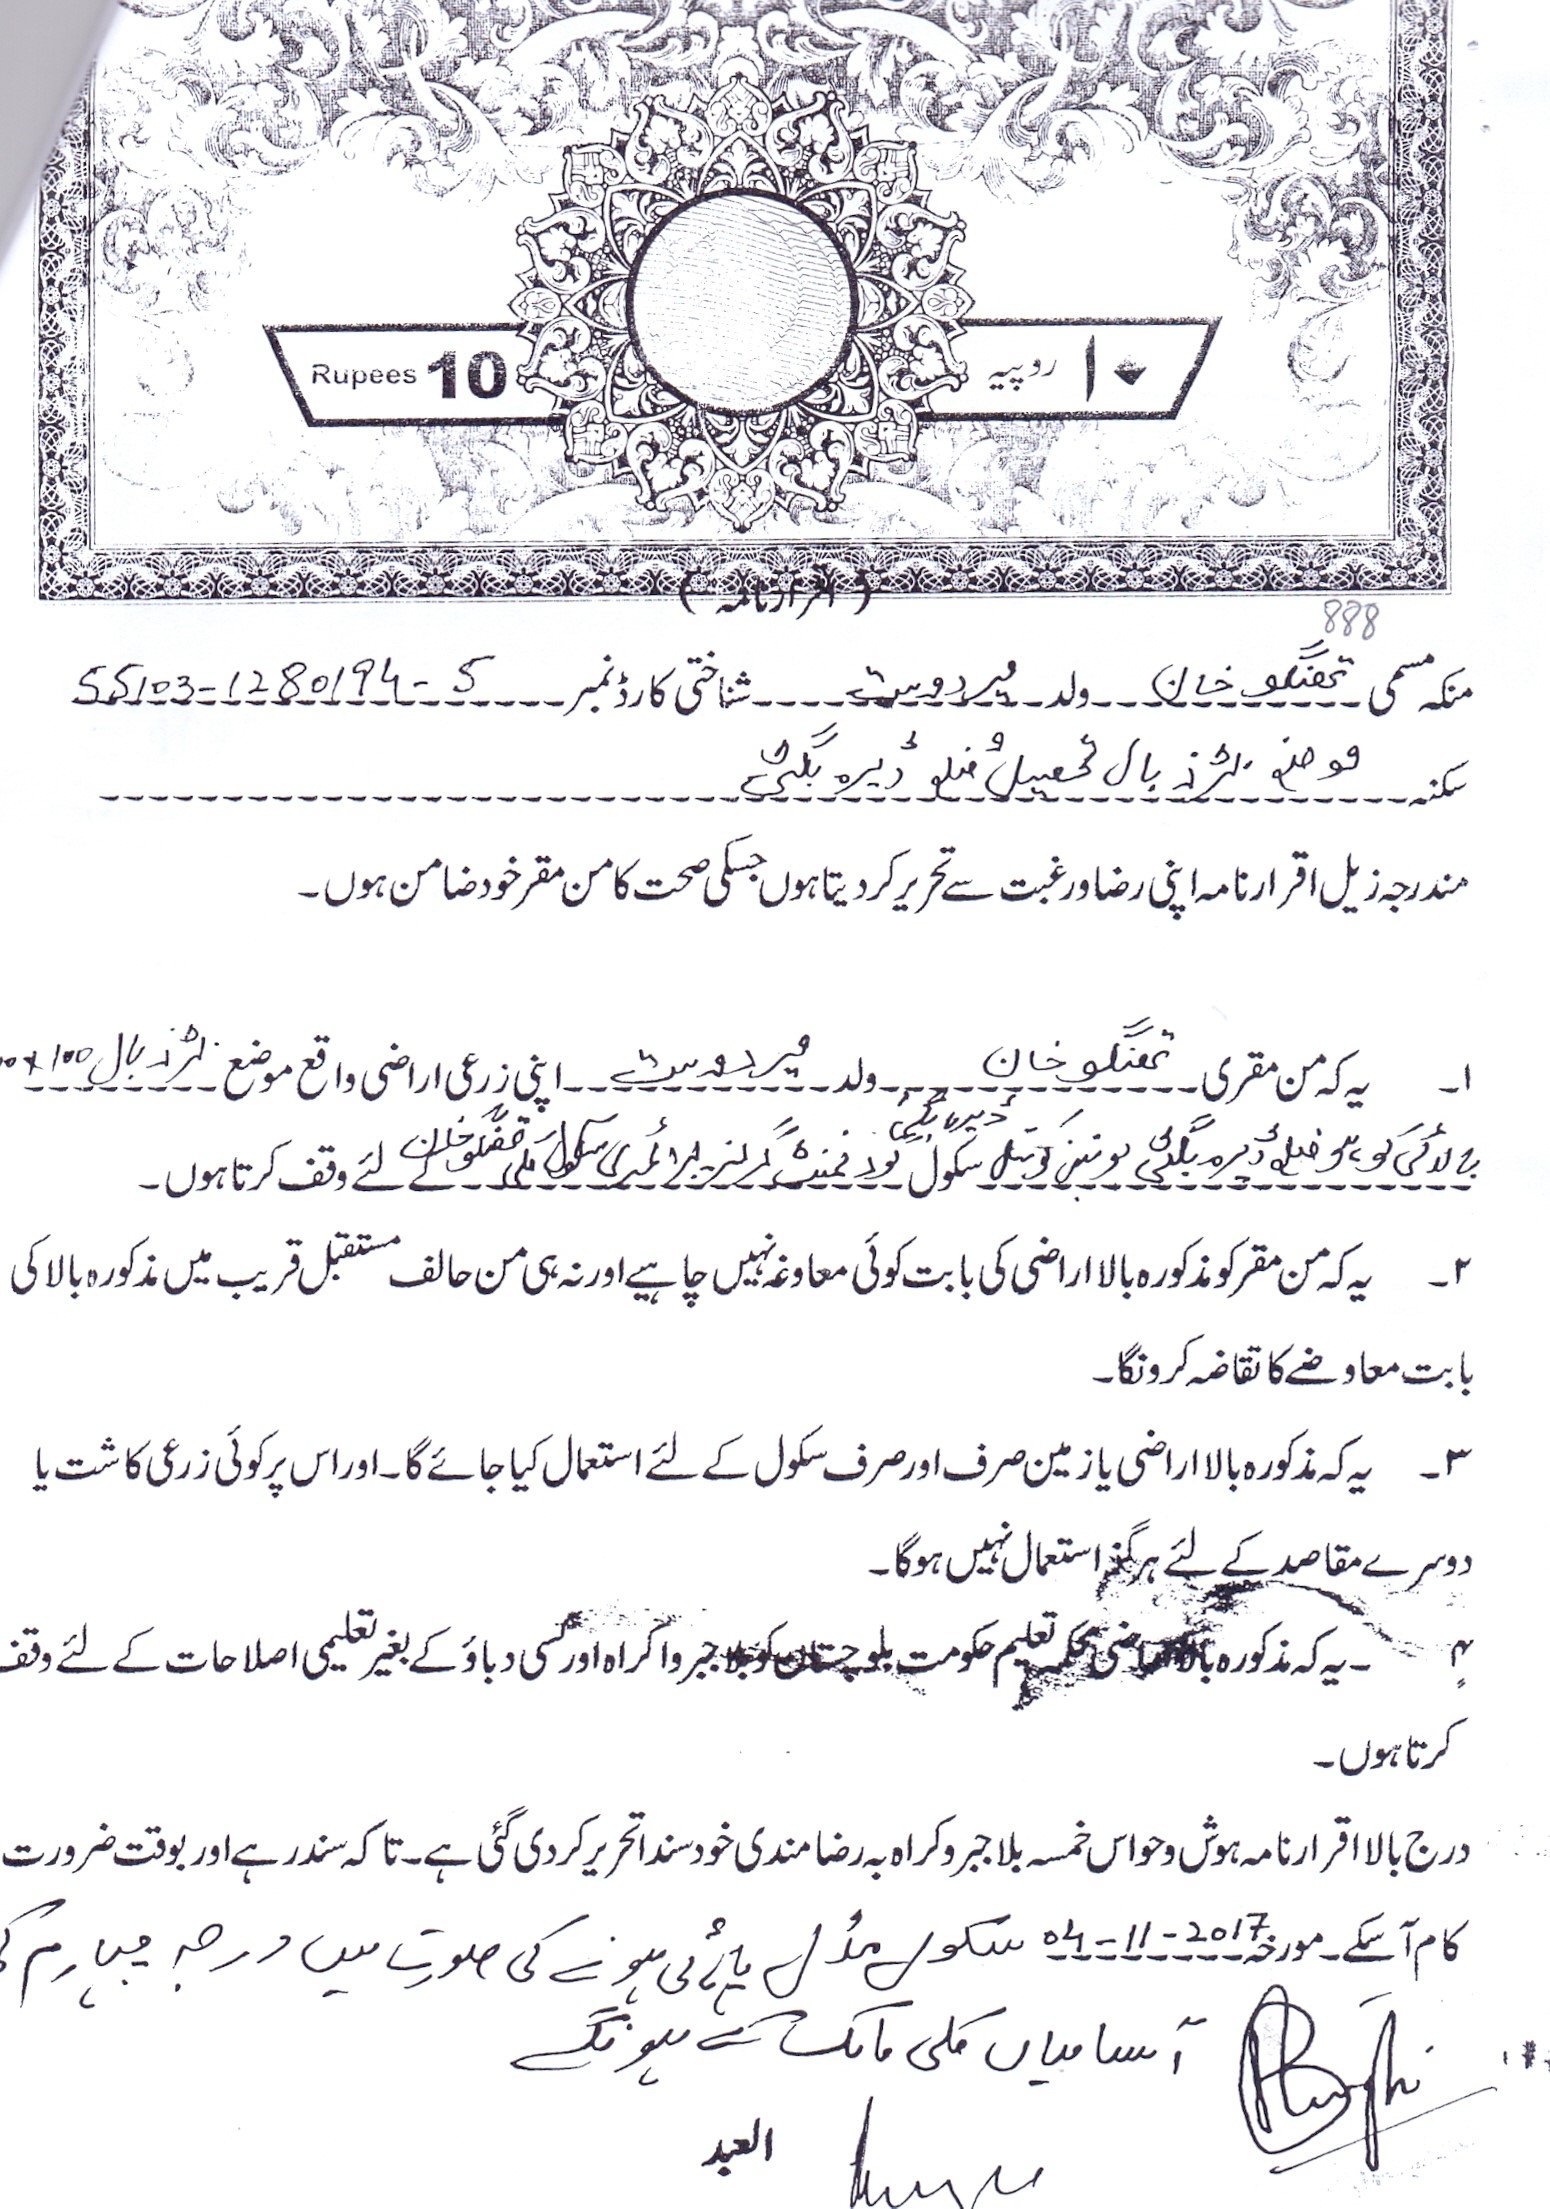 Rupees 10
۱۰ روپیہ
( اقرارنامہ )
888
منکہ مسمی تفنگو خان ولد میر دوست شناختی کارڈ نمبر 55103-1280194-5
سکنہ موضع بال تحصیل و ضلع ڈیرہ بگٹی
مندرجہ زیل اقرارنامہ اپنی رضا ورغبت سے تحریر کر دیتا ہوں جسکی صحت کا من مقر خود ضامن ہوں۔
۱۔ یہ کہ من مقری تفنگو خان ولد میر دوست اپنی زرعی اراضی واقع موضع بال
ضلع ڈیرہ بگٹی یونین کونسل سکول گورنمنٹ گرلز پرائمری سکول خان کے لئے وقف کرتا ہوں۔
ڈیرہ بگٹی
۲۔ یہ کہ من مقر کو مذکورہ بالا اراضی کی بابت کوئی معاوغہ نہیں چاہیے اور نہ ہی من حالف مستقبل قریب میں مذکورہ بالا کی
بابت معاوضے کا تقاضہ کرونگا۔
۳۔ یہ کہ مذکورہ بالا اراضی یا زمین صرف اور صرف سکول کے لئے استعمال کیا جائے گا۔ اور اس پر کوئی زرعی کاشت یا
دوسرے مقاصد کے لئے ہرگز استعمال نہیں ہوگا۔
۴ ۔ یہ کہ مذکورہ بالا اراضی محکمہ تعلیم حکومت بلوچستان کو بلا جبر واکراہ اور کسی دباؤ کے بغیر تعلیمی اصلاحات کے لئے وقف
کرتا ہوں۔
درج بالا اقرارنامہ ہوش وحواس خمسہ بلا جبر وکراہ بہ رضا مندی خود سندا تحریر کر دی گئی ہے۔ تاکہ سند رہے اور بوقت ضرورت
کام آسکے۔ مورخہ 04-11-2017 سکول مڈل یا ہائی ہونے کی صورت میں درجہ چہارم کی
آسامیاں مالک کے ہونگے
Bugti
العبد